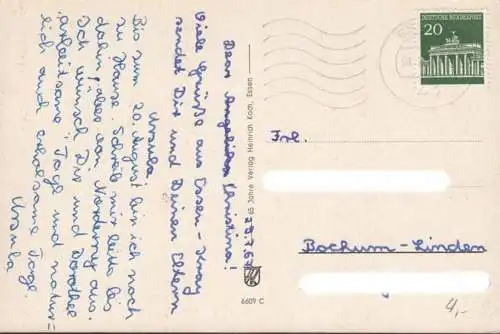 28.7.67
Dear Christina!
Viele Grüße aus Essen-Kray
sendet Dir und Deinen Eltern
Ursula
Bis zum 20. August bin ich noch
zu Hause. Schreib mir bitte bis
dahin, aber von Norderney aus.
Ich wünsch Dir und Dorothee
"arbeitsame" Tage und natür=
lich auch erholsame Tage.
Ursula
65 Jahre Verlag Heinrich Koch, Essen
6609 C
DEUTSCHE BUNDESPOST
20
Frl.
Bochum-Linden
4,-